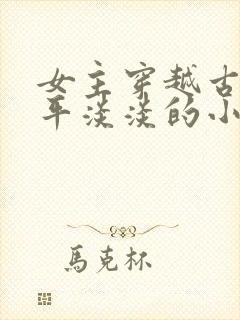 女主穿越古
平淡淡的小
馬克杯